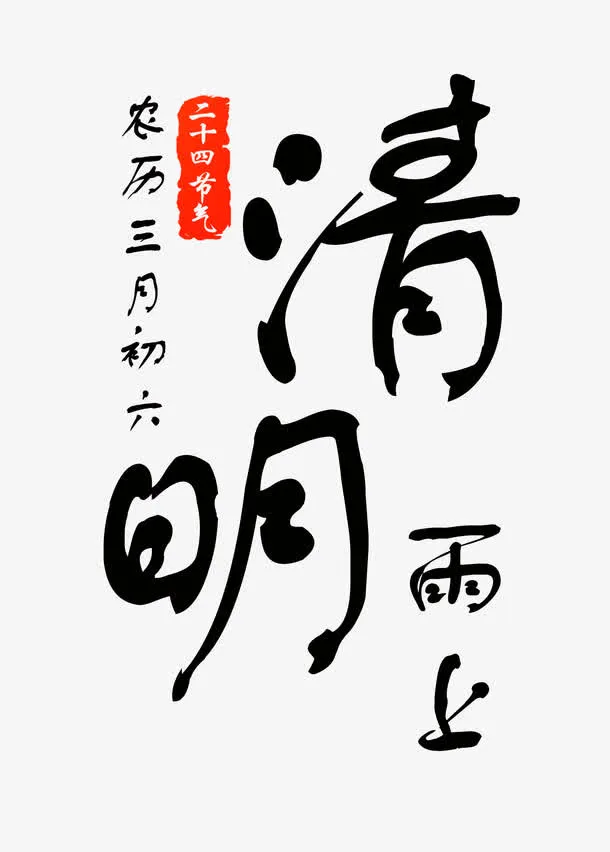 清明
雨上
二十四节气
农历三月初六